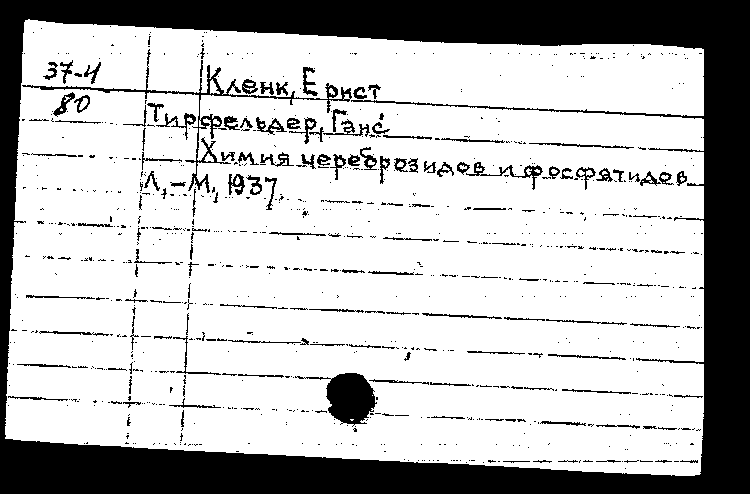 37-4
80
Кленк, Ернст
Тирфельдер, Ганс
Химия цереброзидов и фосфатидов
Л,-М., 1937.